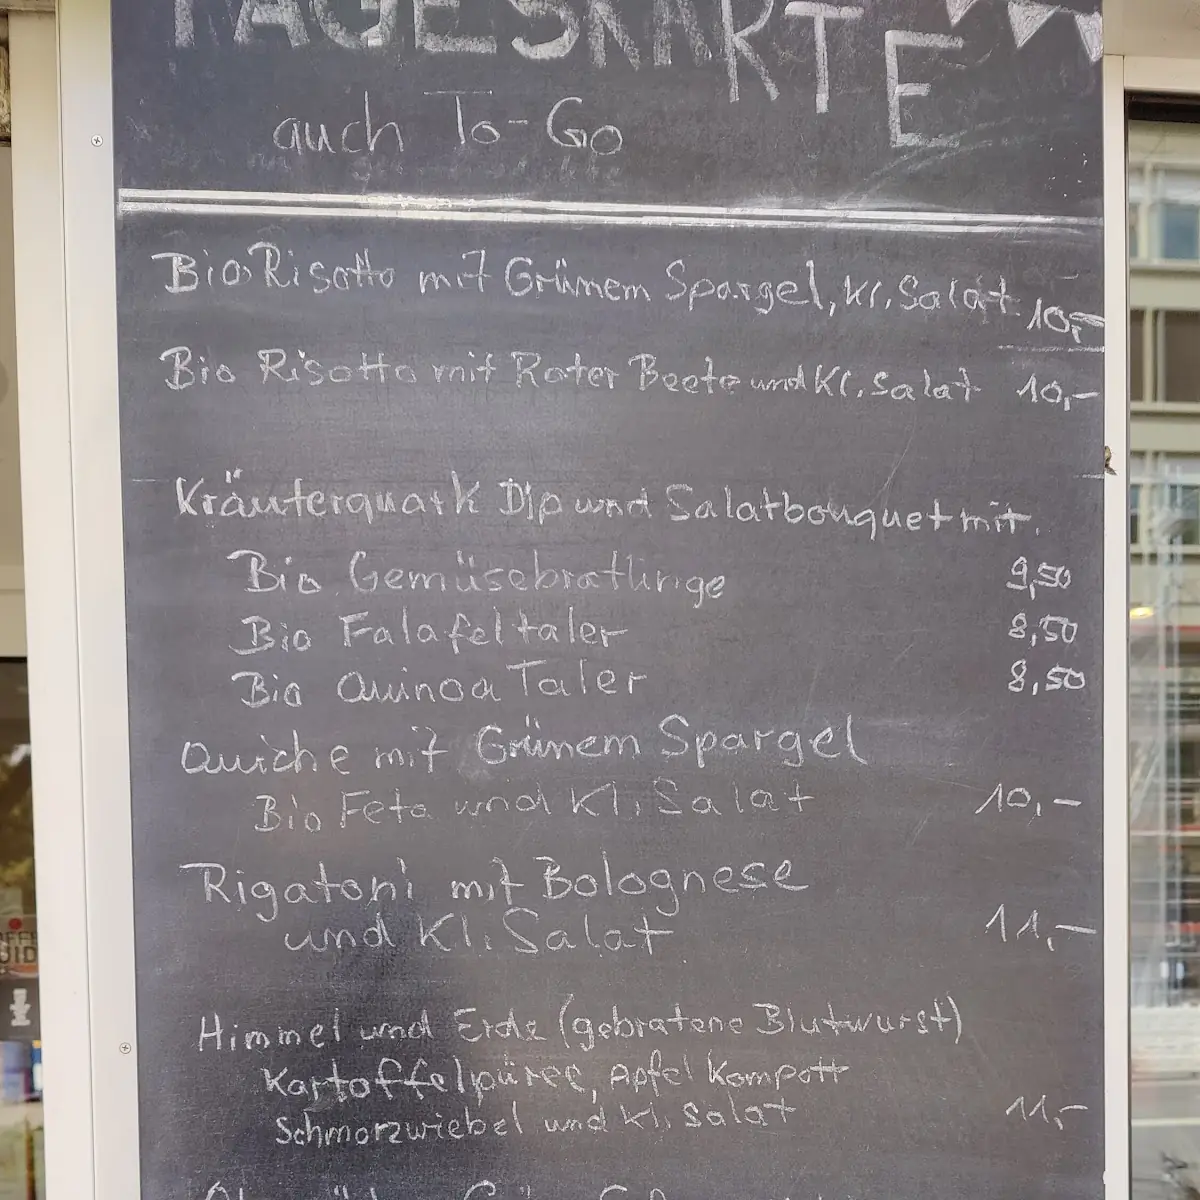 TAGESKARTE
auch To-Go
Bio Risotto mit Grünem Spargel, Kl. Salat 10,-
Bio Risotto mit Roter Beete und Kl. Salat 10,-
Kräuterquark Dip und Salatbouquet mit.
Bio Gemüsebratlinge 9,50
Bio Falafeltaler 8,50
Bio Quinoa Taler 8,50
Quiche mit Grünem Spargel
Bio Feta und Kl. Salat 10,-
Rigatoni mit Bolognese
und Kl. Salat 11,-
Himmel und Erde (gebratene Blutwurst)
Kartoffelpüree, Apfel Kompott
Schmorzwiebel und Kl. Salat 11,-